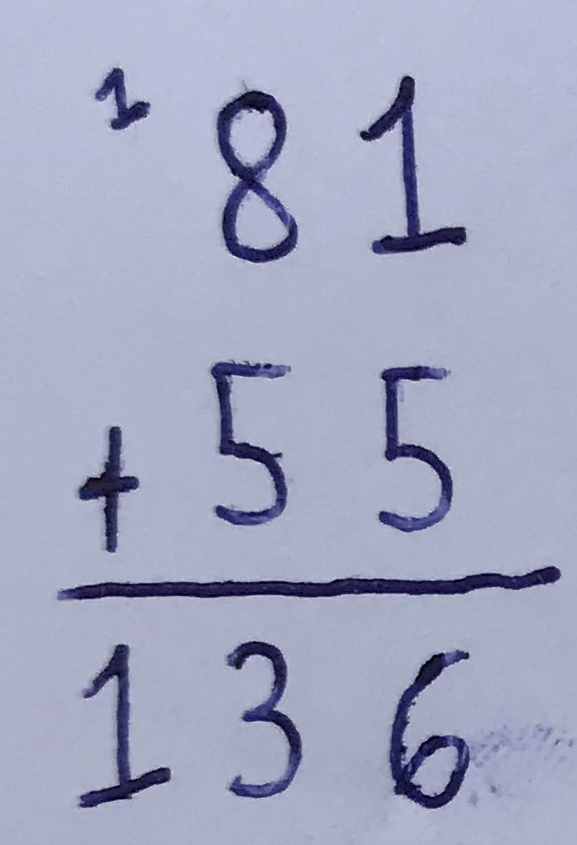 1
81
+ 55
136